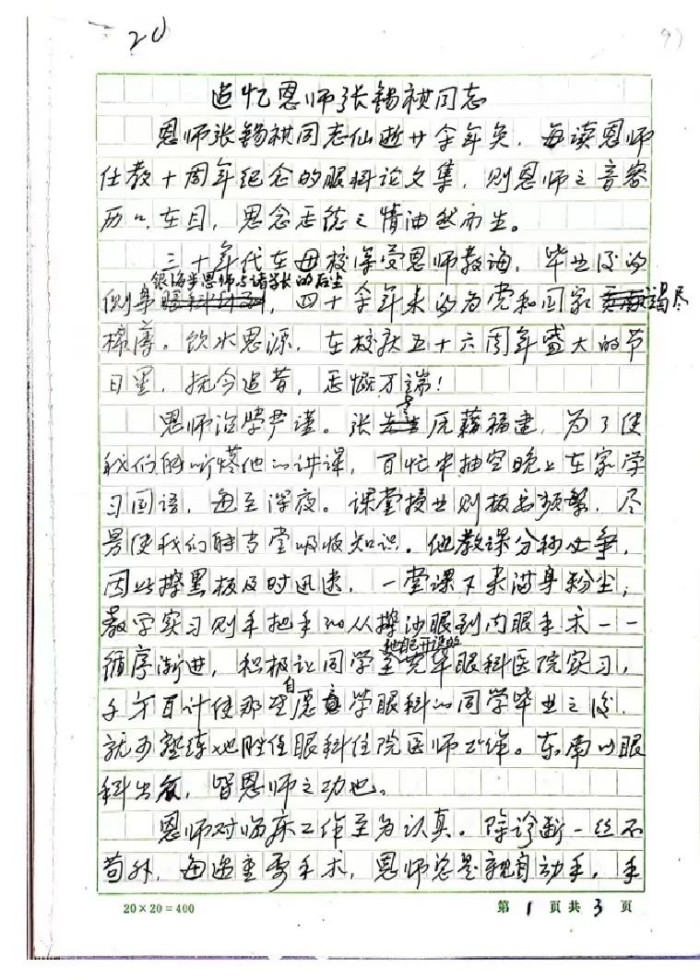 20
97
追忆恩师张锡祺同志
恩师张锡祺同志仙逝廿余年矣,每读恩师
任教十周年纪念的眼科论文集,则恩师之音容
历々在目,思念恩德之情油然而生。
三十年代在母校深受恩师教诲,毕业后的
银海步恩师与诸学长的后尘
侧身,四十余年来的为党和国家竭尽
棉薄。饮水思源,在校庆五十六周年盛大的节
日里,抚今追昔,感慨万端!
恩师治学严谨。张老原籍福建,为了使
我们能听懂他的讲课,百忙中抽空晚上在家学
习国语,每至深夜。课堂授业则板书频繁,尽
量使我们能当堂吸收知识。他教课分秒必争,
因此擦黑板及时迅速,一堂课下来满身粉尘;
教学实习则手把手的从擦沙眼到内眼手术一一
他自己开设的
循序渐进,积极让同学至光华眼科医院实习,
千方百计使那些自愿学眼科的同学毕业之后
就可熟练地胜任眼科住院医师工作。东南以眼
科出众,皆恩师之功也。
恩师对临床工作至为认真。除诊断一丝不
苟外,每遇重要手术,恩师总是亲自动手,手
20×20=400
第1页共3页